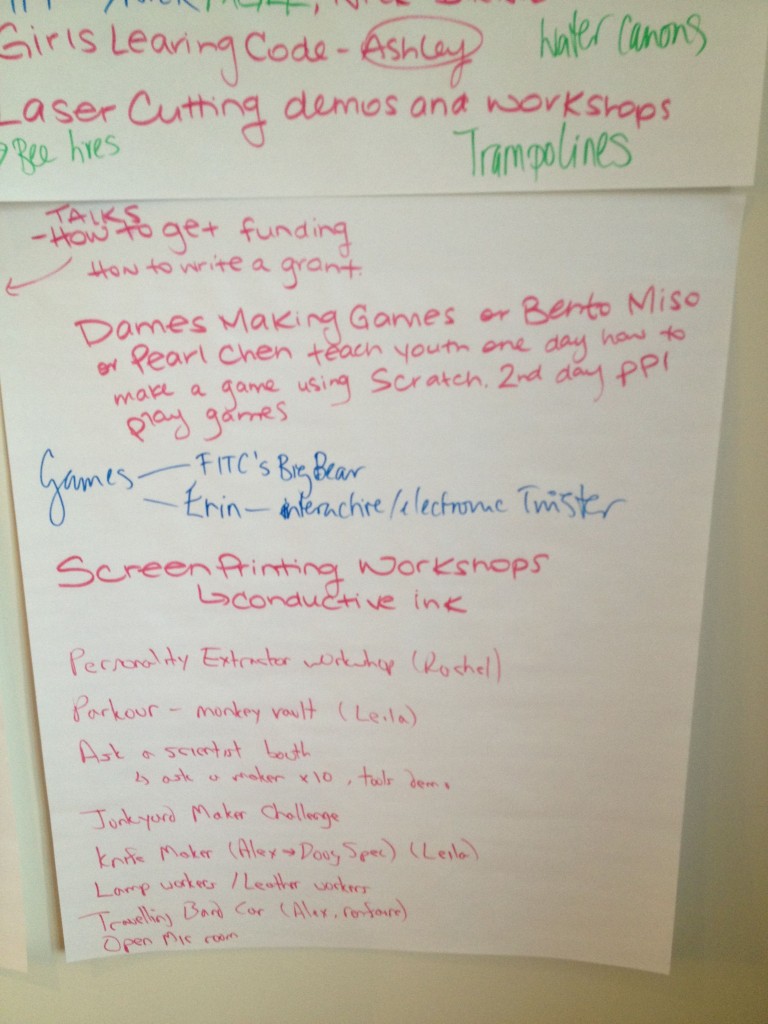 Girls Learing Code - Ashley
Water Canons
Laser Cutting demos and workshops
Bee hives
Trampolines
TALKS
- How to get funding
How to write a grant.
Dames Making Games or Bento Miso
or Pearl Chen teach youth one day how to
make a game using Scratch. 2nd day ppl
play games
Games — FITC's Big Bear
— Erin — interactive/electronic Twister
Screen Printing Workshops
↳ conductive ink
Personality Extractor workshop (Rachel)
Parkour - monkey vault (Leila)
Ask a scientist booth
↳ ask a maker x10, tools demo
Junkyard Maker Challenge
Knife Maker (Alex → Doug, Spec) (Leila)
Lamp workers / Leather workers
Travelling Band Car (Alex,
Open Mic room